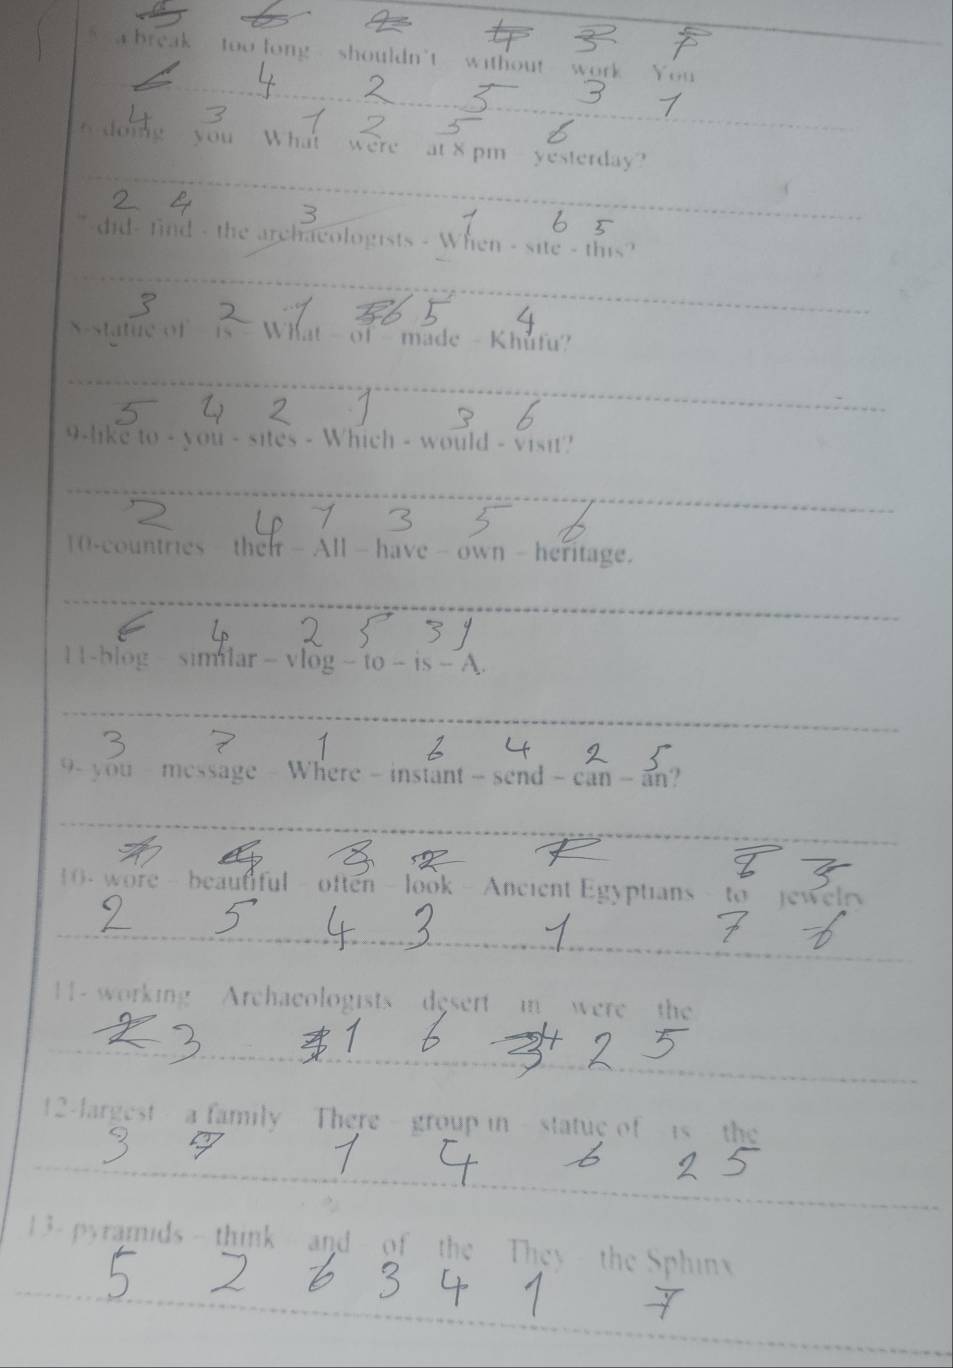 a break too long shouldn't without work You
6 4 2 5 3 1
4 3 1 2 5 6
doing you What were at 8 pm yesterday?
2 4 3 1 6 5
did- find - the archaeologists - When - site - this?
3 2 1 6 5 4
8-statue of - is - What - of - made - Khufu?
5 4 2 1 3 6
9-like to - you - sites - Which - would - visit?
2 4 1 3 5 6
10-countries - their - All - have - own - heritage.
6 4 2 5 3 1
11-blog - similar - vlog - to - is - A.
3 7 1 6 4 2 5
9- you - message - Where - instant - send - can - an?
10- wore - beautiful - often - look - Ancient Egyptians - to jewelry
2 5 4 3 1 7 6
11- working Archaeologists desert in were the
3 1 6 4 2 5
12-largest a family There - group in - statue of is - the
3 7 1 4 6 2 5
13- pyramids - think - and - of the They - the Sphinx
5 2 6 3 4 1 7